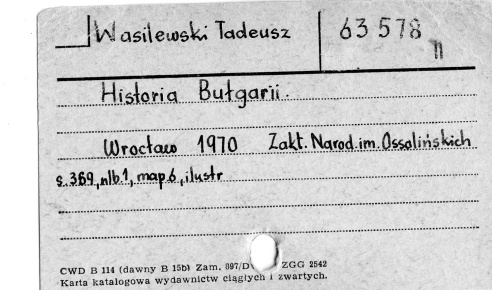 Wasilewski Tadeusz 63 578
II
Historia Bułgarii.
Wrocław 1970 Zakt. Narod. im. Ossolińskich
s. 369, nlb. 1, map. 6, ilustr
CWD B 114 (dawny B 15b) Zam. 897/D ZGG 2542
Karta katalogowa wydawnictw ciągłych i zwartych.